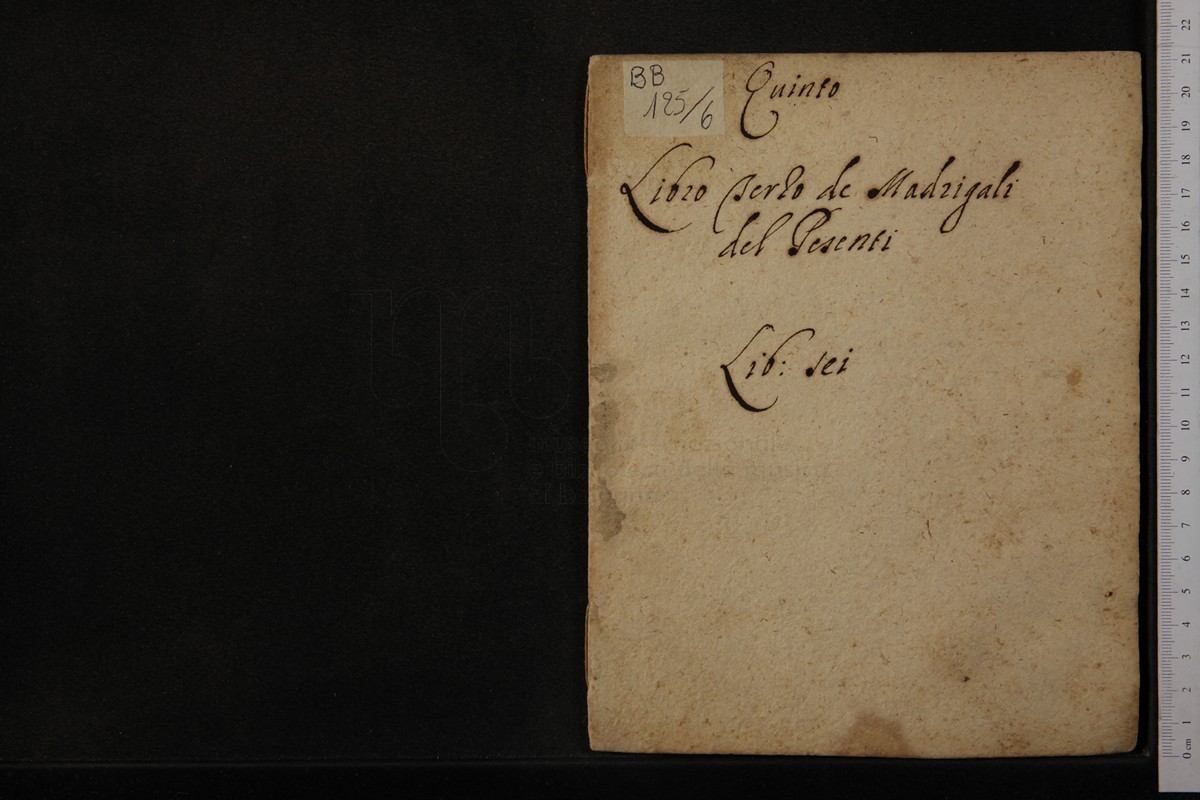 BB
125/6
Quinto
Libro Terzo de Madrigali
del Pesenti
Lib: sei
22
21
20
19
18
17
16
15
14
13
12
11
10
9
8
7
6
5
4
3
2
1
0 cm